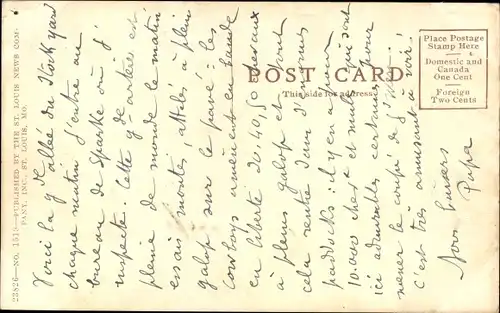 POST CARD
This side for address.
Place Postage
Stamp Here
Domestic and
Canada
One Cent
Foreign
Two Cents
22826—NO. 1513—PUBLISHED BY THE ST. LOUIS NEWS COM-
PANY, INC., ST. LOUIS, MO.
Voici la gde allée du Stock yard
chaque matin j'entre au
bureau de Sparks où j'
inspecte. Cette gde artère est
pleine de monde le matin
essais montés attelés à plein
galop sur le pavé: les
Cowboys amènent en bande
en liberté 30, 40, 50 chevaux
à pleins galop et tout
cela rentre dans d'énormes
paddocks: il y en a pour
10.000 chev et mules qui sont
ici admirables certains pour
mener le coupé de
c'est très amusant à voir!
Bons baisers
Papa